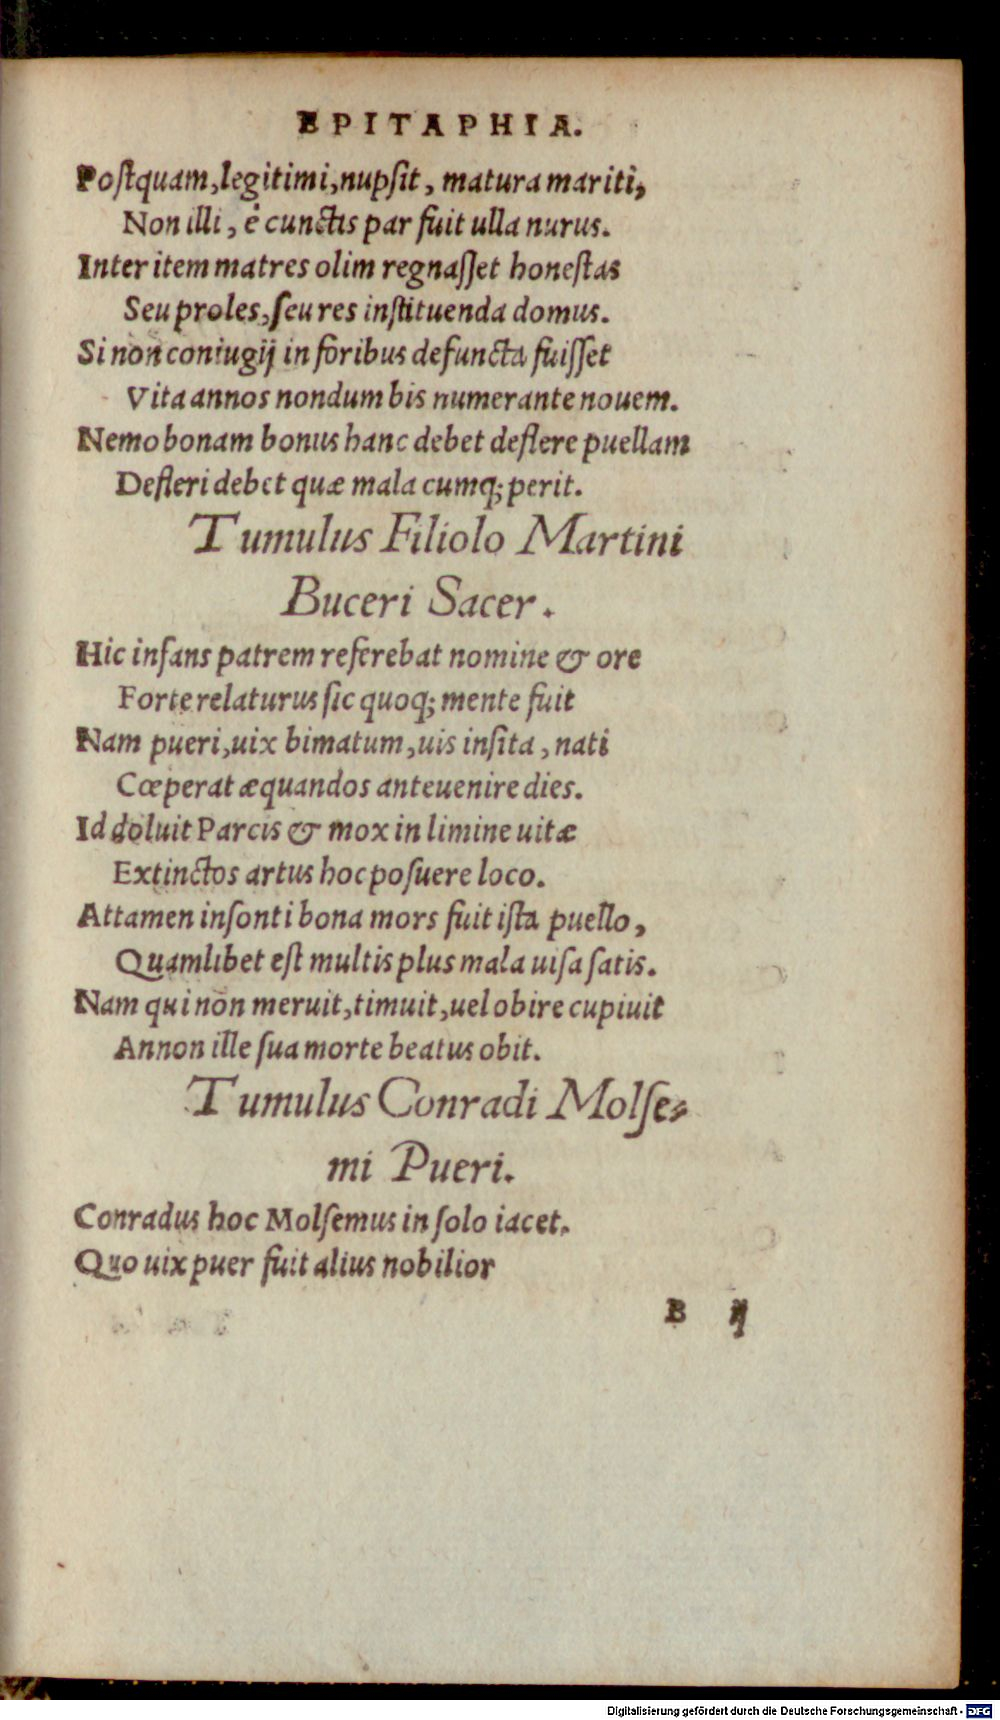 EPITAPHIA.
Postquam, legitimi, nupsit, matura mariti,
Non illi, è cunctis par fuit ulla nurus.
Inter item matres olim regnasset honestas
Seu proles, seu res instituenda domus.
Si non coniugij in foribus defuncta fuisset
Vita annos nondum bis numerante nouem.
Nemo bonam bonus hanc debet deflere puellam
Defleri debet quæ mala cumq; perit.
Tumulus Filiolo Martini
Buceri Sacer.
Hic infans patrem referebat nomine & ore
Forte relaturus sic quoq; mente fuit
Nam pueri, uix bimatum, uis insita, nati
Cœperat æquandos anteuenire dies.
Id doluit Parcis & mox in limine uitæ
Extinctos artus hoc posuere loco.
Attamen insonti bona mors fuit ista puello,
Quamlibet est multis plus mala uisa satis.
Nam qui non meruit, timuit, uel obire cupiuit
Annon ille sua morte beatus obit.
Tumulus Conradi Molse-
mi Pueri.
Conradus hoc Molsemus in solo iacet.
Quo uix puer fuit alius nobilior
B ij
Digitalisierung gefördert durch die Deutsche Forschungsgemeinschaft - DFG